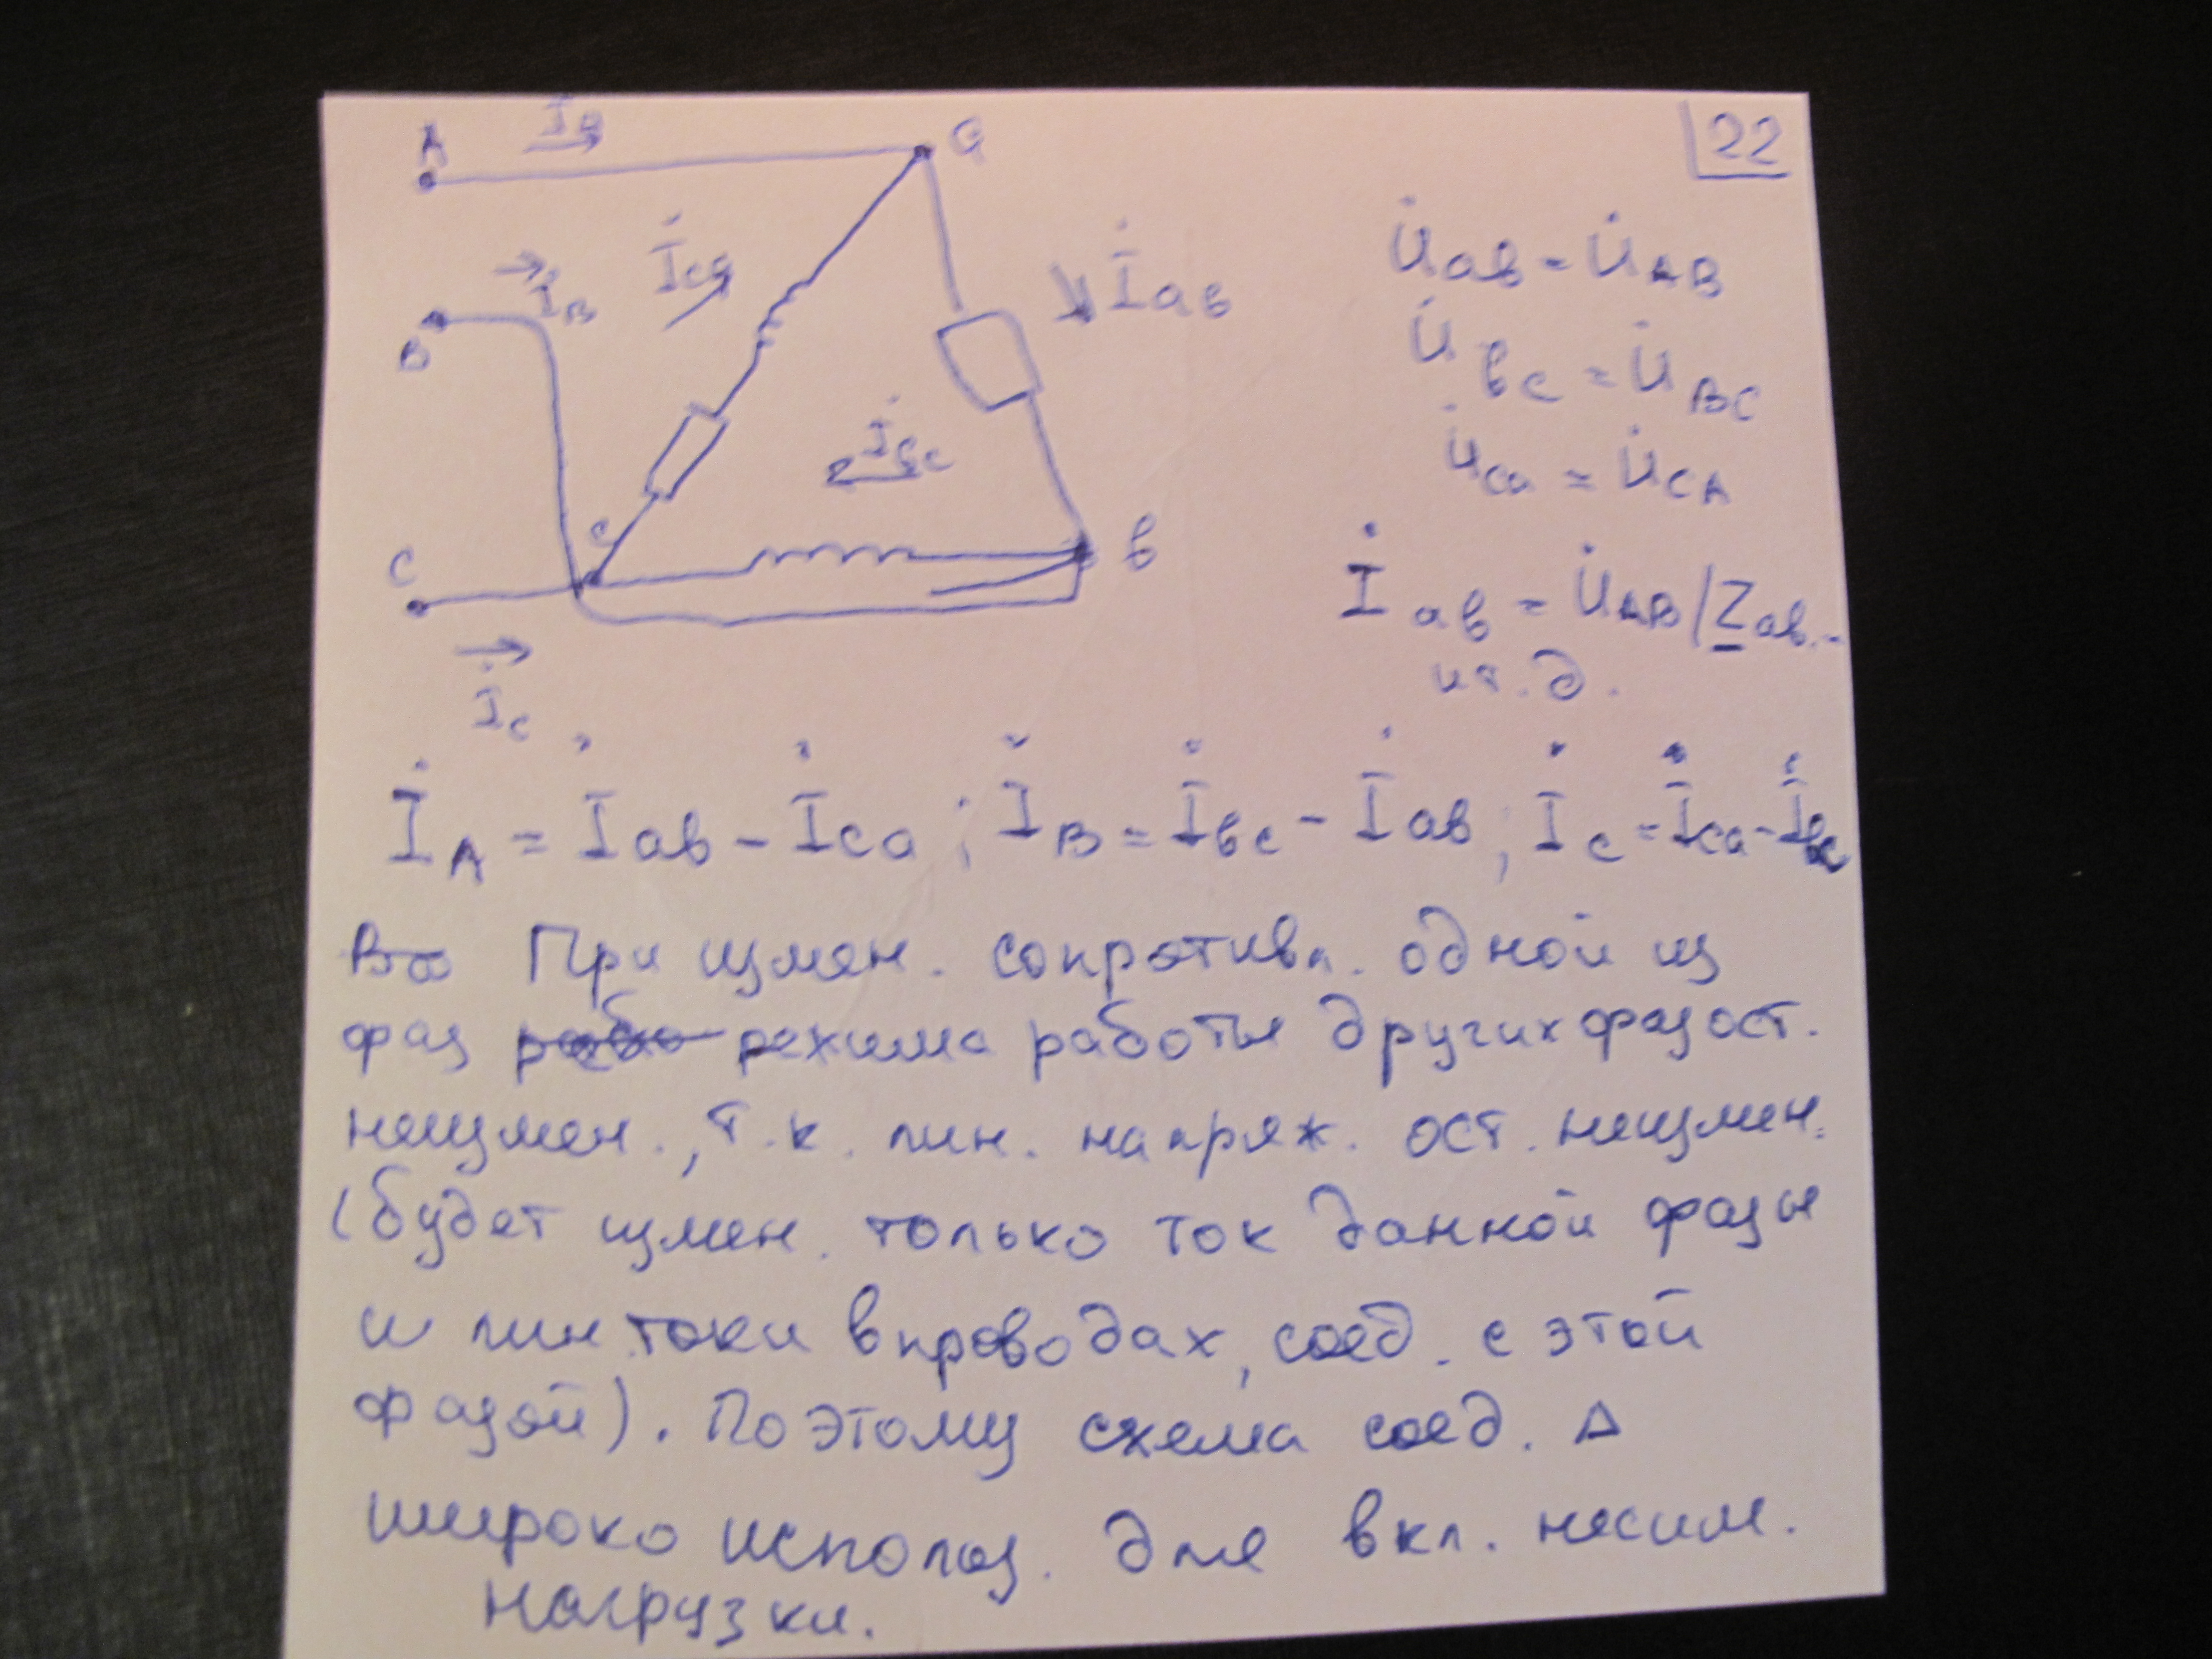 22
A
İA
a
İca
İab
İB
B
İbc
c
C
b
İC
U̇ab = U̇AB
U̇bc = U̇BC
U̇ca = U̇CA
İab = U̇AB / Zab
и т. д.
İA = İab - İca ; İB = İbc - İab ; İC = İca - İbc
При измен. сопротивл. одной из
фаз режима работы других фаз ост.
неизмен., т.к. лин. напряж. ост. неизмен.
(будет измен. только ток данной фазы
и лин. токи в проводах, соед. с этой
фазой). Поэтому схема соед. Δ
широко использ. для вкл. несим.
нагрузки.